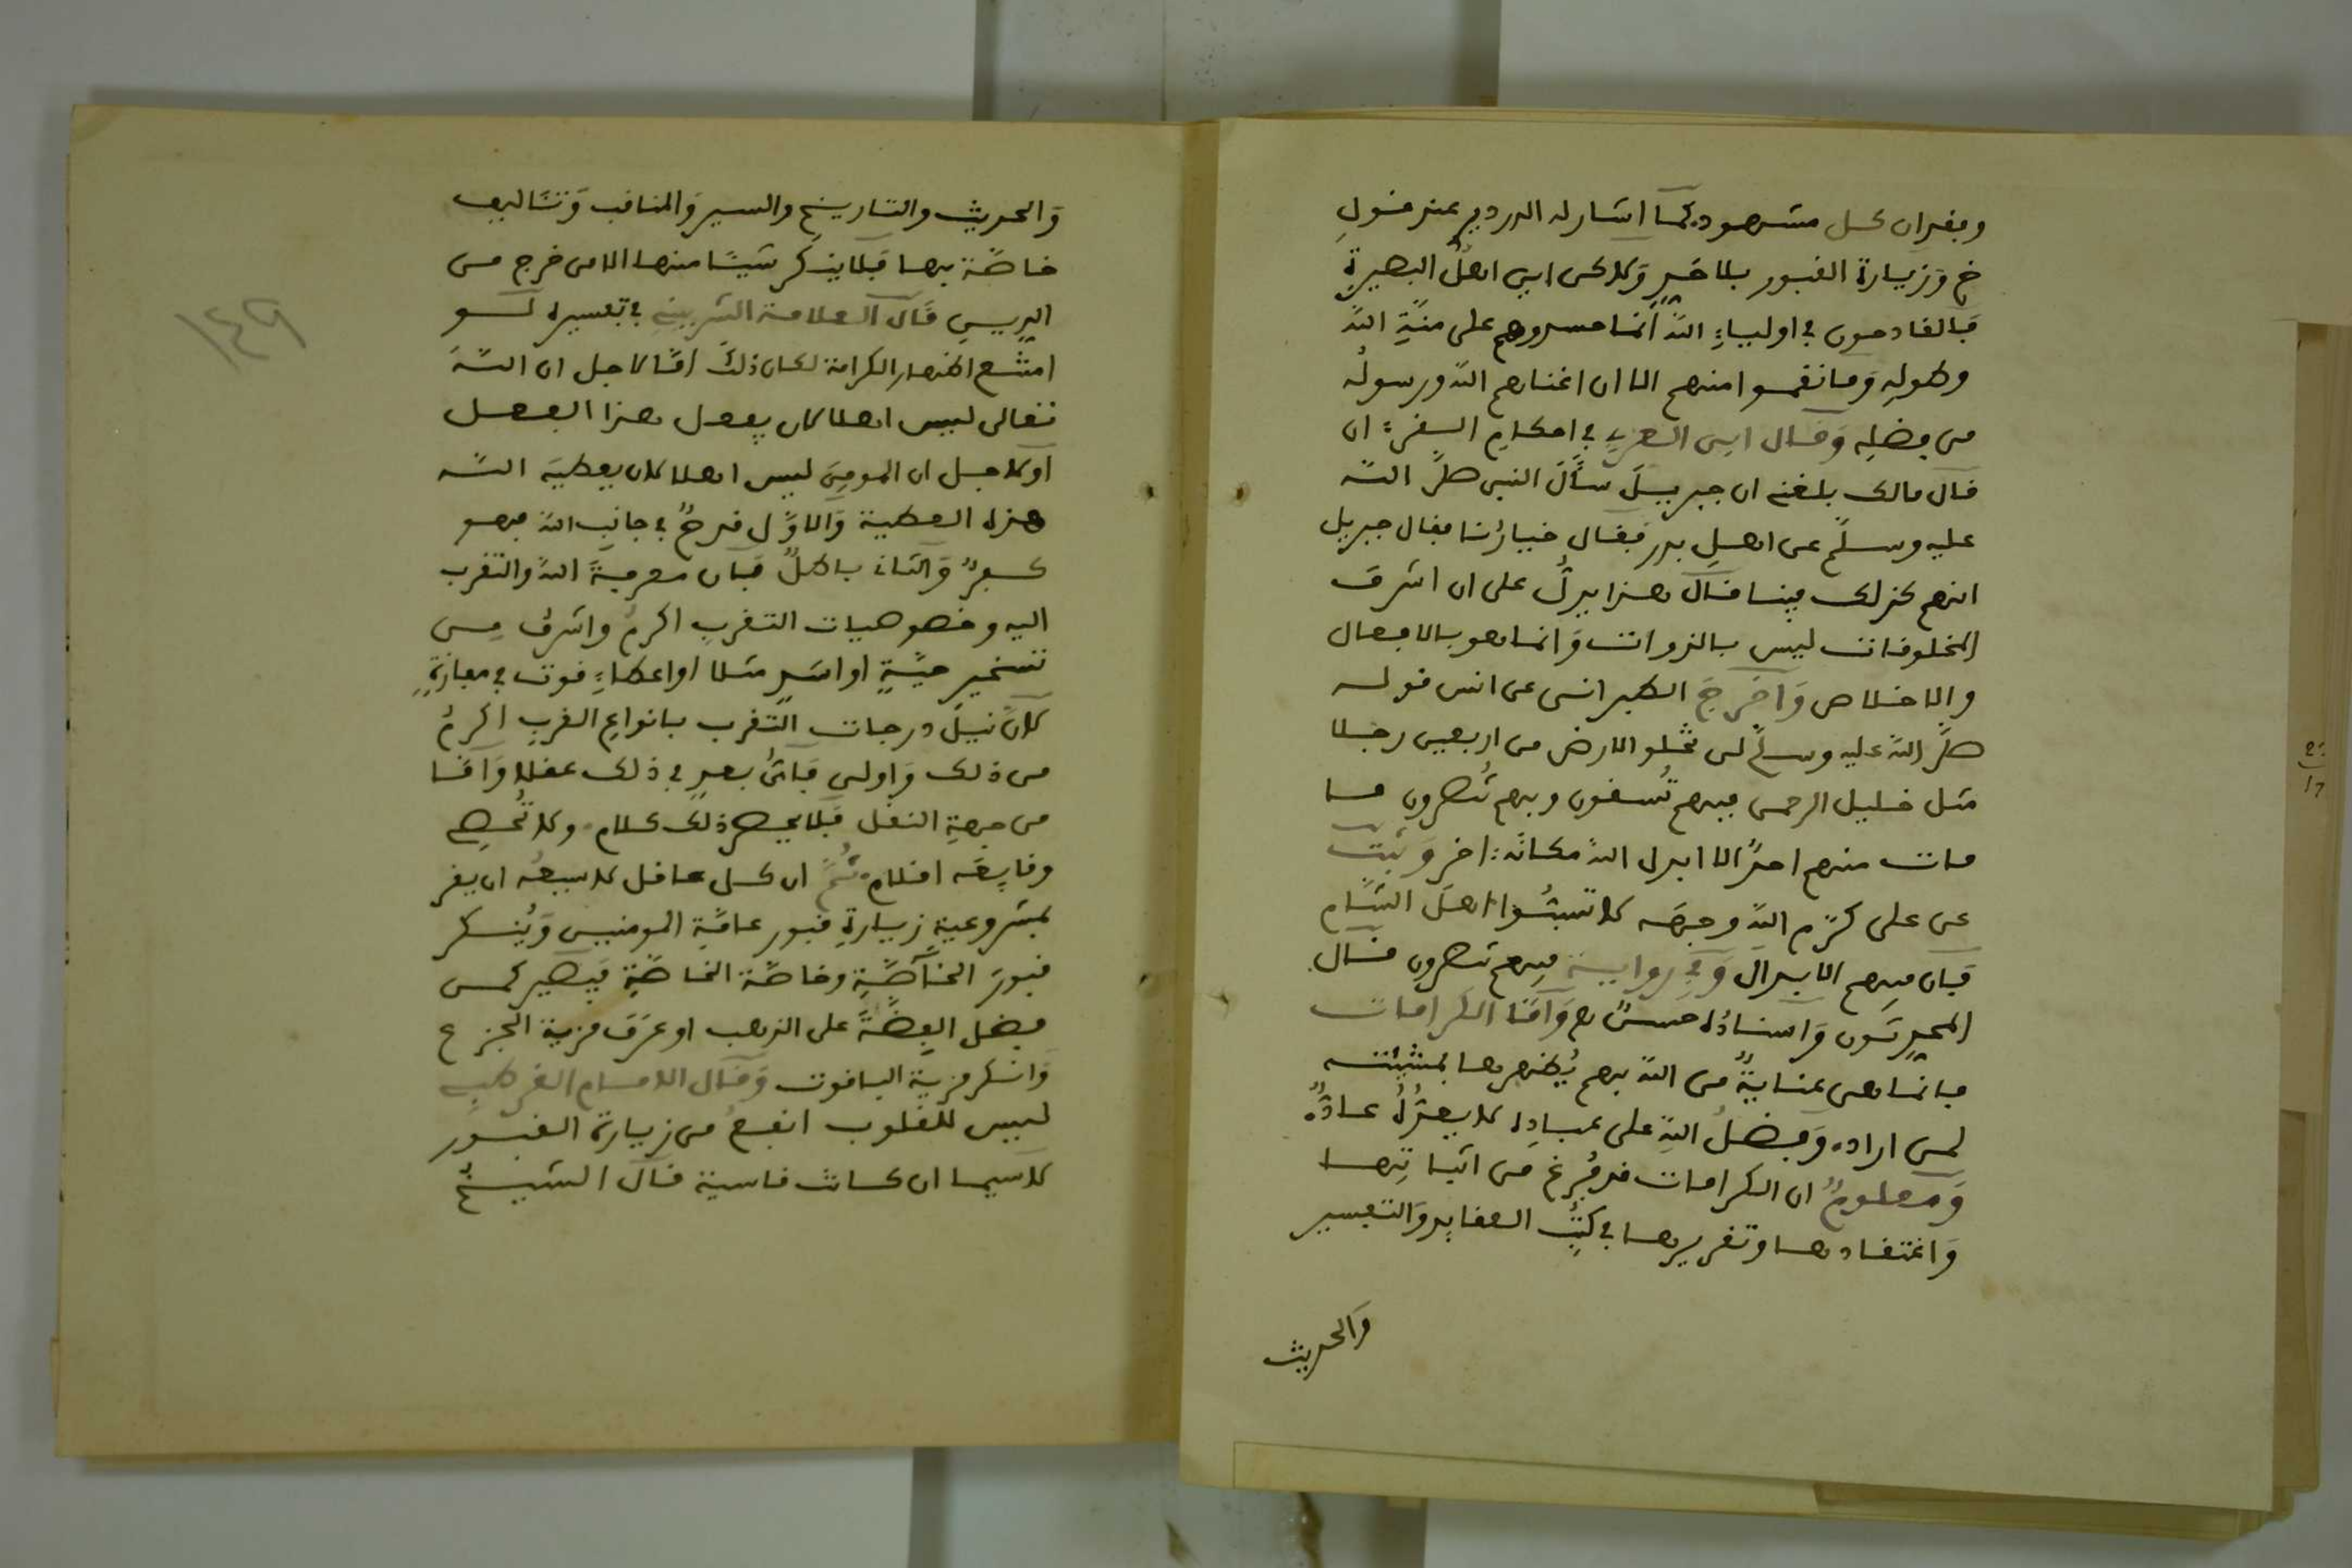 وبفدان كل مشهود. كما اشار له الدردير عند قول
خ وَزيارة القبور بلا حَدٍّ وَلاكن اين اهلُ البصيرةِ
فَالقادحون في اولياءِ اللهِ انما حسدوهم على منّةِ اللهِ
وطولِهِ وَما نقموا منهم الا ان اغناهم اللهُ ورسولُه
من فضلِهِ وَقال ابن العربي في احكامِ القرءان
قال مالك بلغني ان جبريلَ سأَلَ النبي صلى الله
عليه وسلّم عن اهلِ بدر فَقال خيارُنا فقال جبريل
انهم كذلك فينا قال هذا يدلُّ على ان اشرف
المخلوقات ليس بالذوات وَانما هو بالافعال
والاخلاص وَاخرَجَ الطبراني عن انس قوله
صلَّى الله عليه وسلّم لن تخلو الارض من اربعين رجلا
مثل خليل الرحمن فبهم تُسقون وبهم تُنصرون ما
مات منهم احدٌ الا ابدل اللهُ مكانَه: اخر وَثبت
عن على كرّم اللهُ وجهَه لا تسبُّوا اهلَ الشام
فَان فيهم الابدال وَفي رواية فبهم تنصرون قال
المحدِثون وَاسنادُه حسنٌ هـ وَاَمّا الكرامات
فانما هى عنايةٌ من اللهِ بهم يُظهرها بمشيئته
لمن اراده وَفضلُ اللهِ على عبادِه لا يعُدُّهُ عادٌّ.
وَمعلومٌ ان الكرامات قد فُرغ من اثباتِها
وَاعتقادها وتقريرها في كتُبِ العقايد وَالتفسير
وَالحديث
وَالحديث والتاريخ والسير وَالمناقب وَتئاليف
خاصّة بها فَلا ينكر شيئًا منها الا من خرج من
الدين قال العلامة الشربيني في تفسيره لو
امتنع اظهار الكرامة لكان ذلك اما لاجل ان اللهَ
تعالى ليس اهلا لان يفعل هذا الفعل
او لاجل ان المومنَ ليس اهلا لان يعطيَه الله
هذه العطية وَالاوّل قدحٌ في جانبِ اللهِ فهو
كفرٌ وَالثاني باطلٌ فَان معرفةَ اللهِ والتقرب
اليه وخصوصيات التقربِ اكرمُ واشرفُ مِن
تسخير حيّةٍ او اسَدٍ مثلا او اعطاءِ قوت في مفازةٍ
لانَّ نيلَ درجات التقرب بانواعِ القربِ اكرمُ
من ذلك وَاولى فَاىُّ بعدٍ في ذلك عقلا وَامّا
من جهةِ النقل فَلا يحصر ذلك كلام. ولا تُحصِي
وقايِعَه اقلام. ثُمَّ ان كل عاقل لا يسعُه ان يقر
بمشروعيةِ زيارةِ قبور عامّةِ المومنين وَيُنكر
قبورَ الخآصّةِ وخاصّة الخاصّةِ فَيصير كمن
فضل الفِضّةَ على الذهب او عرَف مزية الجزع
وَانكر مزية الياقوت وَقال الامام القرطبي
ليس للقلوب انفعُ من زيارة القبور
لاسيما ان كانت قاسية قال الشيخُ
١٤٩